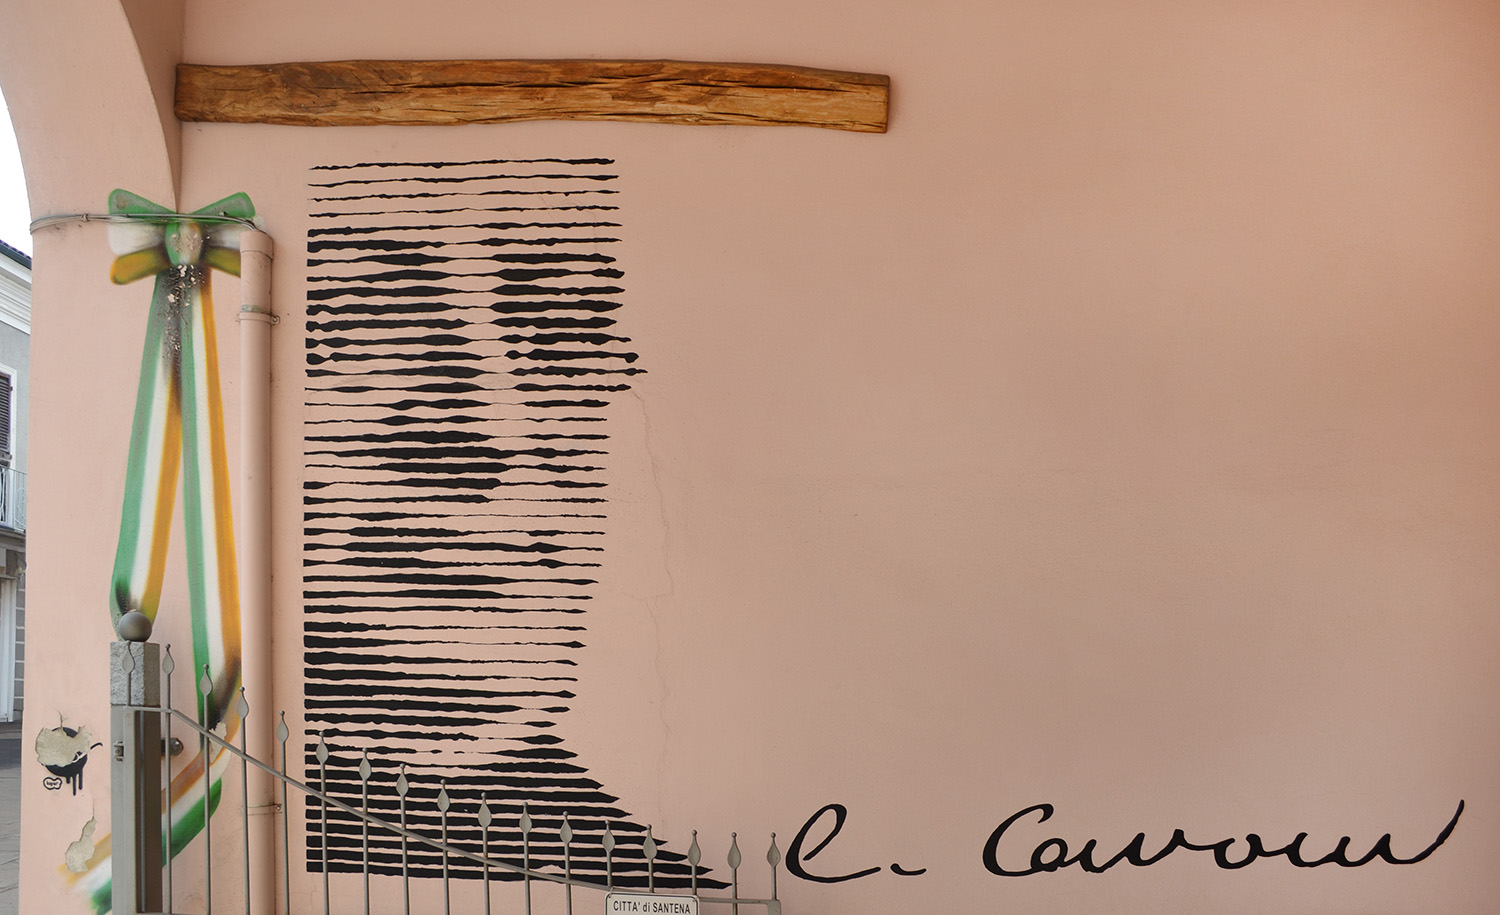 C. Cavour
CITTA' di SANTENA